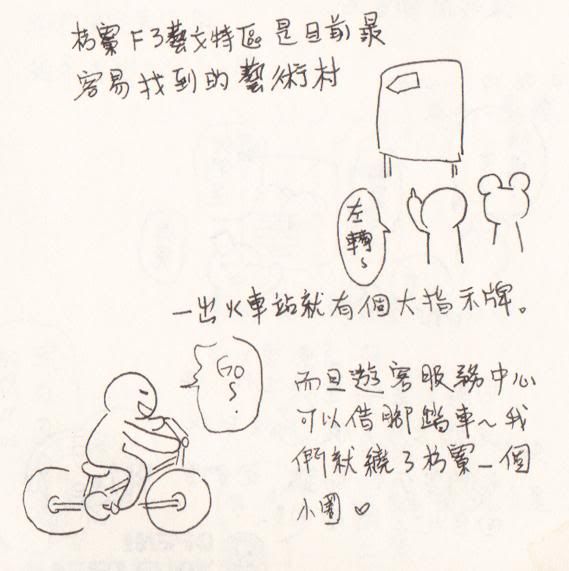 枋寮F3藝文特區是目前最
容易找到的藝術村
左轉~
一出火車站就有個大指示牌。
GO~!
而且遊客服務中心
可以借腳踏車~我
們就繞了枋寮一個
小圈♡